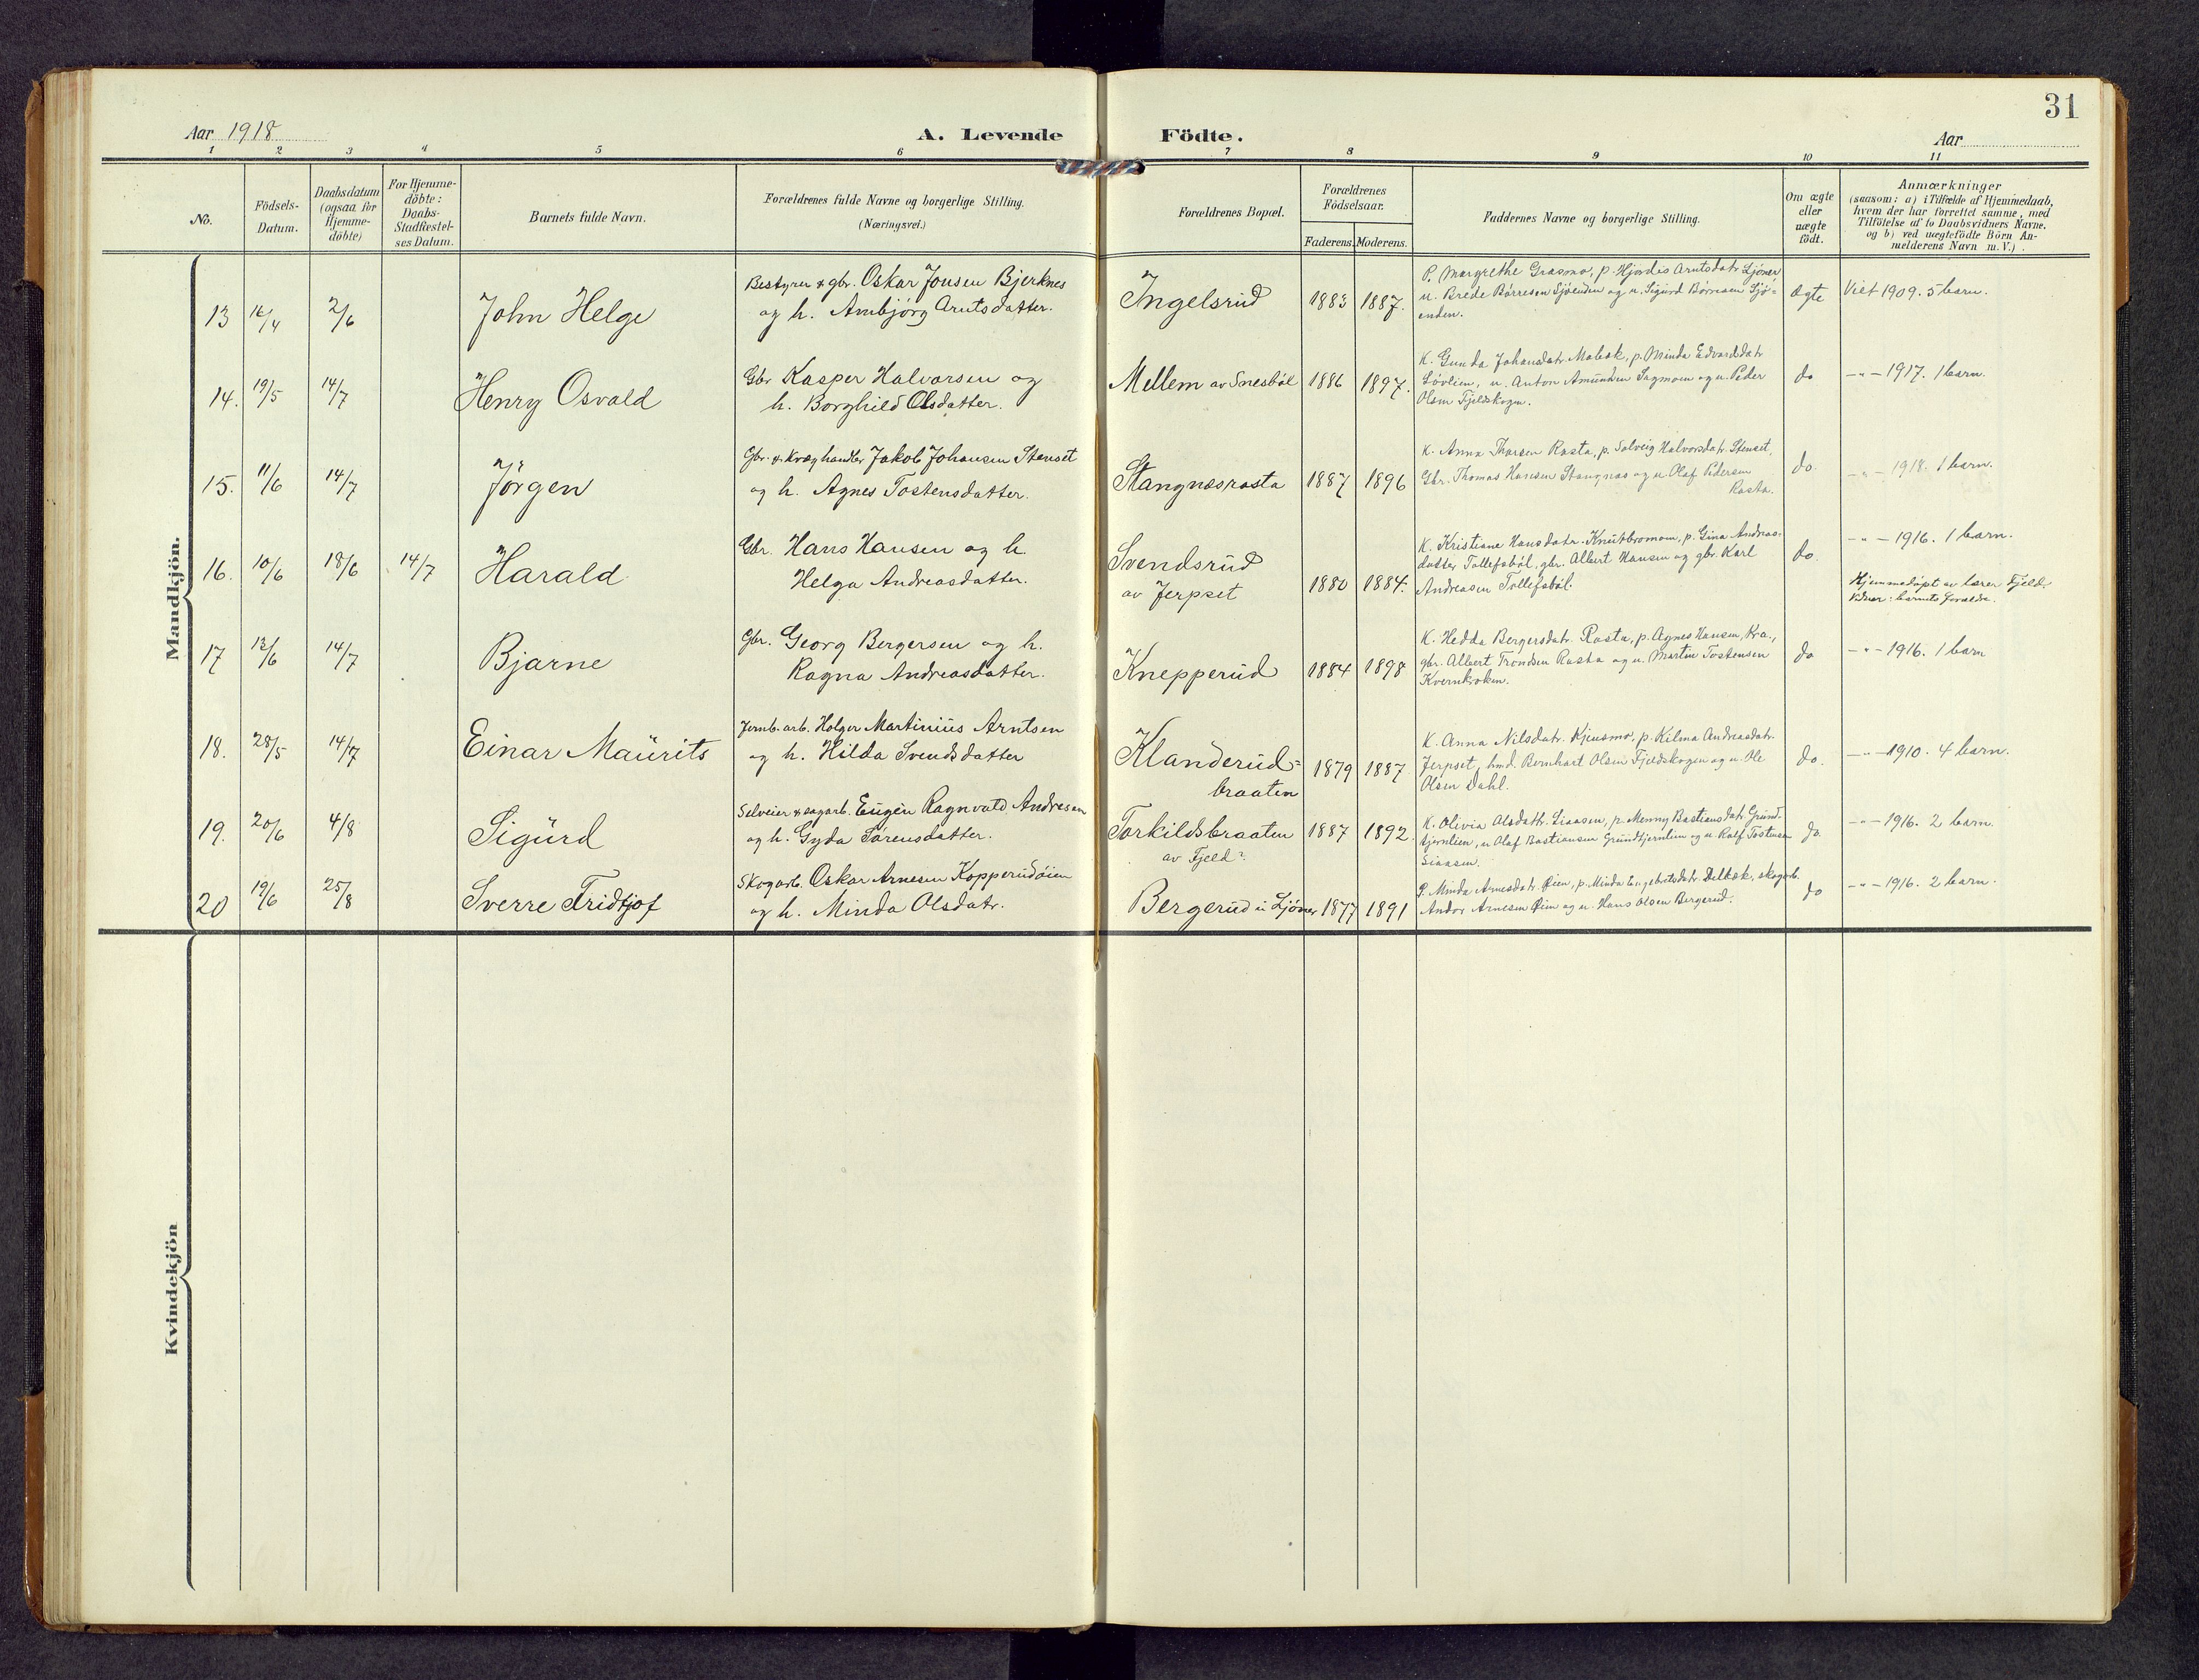 31
Aar 1918
A. Levende Födte.
Aar
1 2 3 4 5 6 7 8 9 10 11
No.
Födsels-
Datum.
Daabsdatum
(ogsaa for
Hjemme-
döbte)
For Hjemme-
döbte:
Daabs-
Stadfæstel-
ses Datum.
Barnets fulde Navn.
Forældrenes fulde Navne og borgerlige Stilling.
(Næringsvei.)
Forældrenes Bopæl.
Forældrenes
Födselsaar.
Faderens. Moderens.
Faddernes Navne og borgerlige Stilling.
Om ægte
eller
uægte
födt.
Anmærkninger
(saasom: a) i Tilfælde af Hjemmedaab,
hvem der har forrettet samme, med
Tilföielse af to Daabsvidners Navne.
og b) ved uægtefödte Börn An-
melderens Navn m. V.)
Mandkjön.
13 16/4 2/6 John Helge
Bestyrer & gbr. Oskar Jonsen Bjerknes
og h. Arnbjørg Arntsdatter.
Ingelsrud 1883 1887.
P. Margrethe Grasmo, p. Hjørdis Arntsdatr. Ljøner
u. Brede Børresen Sjøenden og u. Sigurd Børresen Sjø-
enden.
Ægte Viet 1909. 5 barn.
14. 19/5 14/7 Henry Osvald
Gbr Kasper Halvorsen og
h. Borghild Olsdatter.
Mellem av Snesbøl 1886 1897.
K. Gunda Johansdatr. Mabek, p. Minda Edvardsdatr
Løvlien, u. Anton Amundsen Sagmoen og u. Peder
Olsen Fjeldskogen.
do -"- 1917. 1 barn.
15. 11/6 14/7 Jörgen
Gbr. & kræghandler Jakob Johansen Stenset
og h. Agnes Tostensdatter.
Stangnæsrasta 1887 1896
K. Anna Thorsen Rasta, p. Solveig Halvorsdatr. Stenset,
Gbr. Thomas Hansen Stangnæs og u. Olaf Pedersen
Rasta.
do. -"- 1918. 1 barn.
16. 10/6 18/6 14/7 Harald
Gbr. Hans Hansen og h.
Helga Andreasdatter.
Svendsrud
av Jerpset 1880 1884.
K. Kristiane Hansdatr. Knutbromoen, p. Gina Andreas-
datter Tollefsbøl, gbr. Albert Hansen og gbr. Karl
Andreasen Tollefsbøl.
do. -"- 1916. 1 barn.
Hjemmedøpt av lærer Fjeld.
Vidner: barnets forældre.
17 12/6 14/7 Bjarne
Gbr. Georg Bergersen og h.
Ragna Andreasdatter.
Knepperud 1884 1898
K. Hedda Bergersdatr. Rasta, p. Agnes Hansen, Kra.,
gbr. Albert Trondsen Rasta og u. Martin Tostensen
Kvernkroken.
do -"- 1916. 1 barn
18. 28/5 14/7 Einar Maurits
Jernb.arb. Holger Martinius Arntsen
og h. Hilda Svendsdatter
Klanderud-
braaten 1879 1887
K. Anna Nilsdatr. Kjensmo, p. Kilma Andreasdatr.
Jerpset, hmd. Bernhart Olsen Fjeldskogen og u. Ole
Olsen Dahl.
do. -"- 1910. 4 barn.
19. 20/6 4/8 Sigurd
Selveier & sagarb. Eugén Ragnvald Andresen
og h. Gyda Sørensdatter.
Torkildsbraaten
av Fjeld 1887 1892.
K. Olivia Olsdatr. Liaasen, p. Menny Bastiansdatr. Grund-
tjernlien, u. Olaf Bastiansen Grundtjernlien og u. Rolf Tostensen
Liaasen.
do. -"- 1916. 2 barn.
20 19/6 25/8 Sverre Fridtjof
Skogarb. Oskar Arnesen Kopperudøien
og h. Minda Olsdatr.
Bergerud u Ljøner 1877 1891
P. Minda Arnesdatr. Øien, p. Minda Engebretsdatr. Delbek, skogarb.
Andor Arnesen Øien og u. Hans Olsen Bergerud.
do -"- 1916. 2 barn.
Kvindekjön